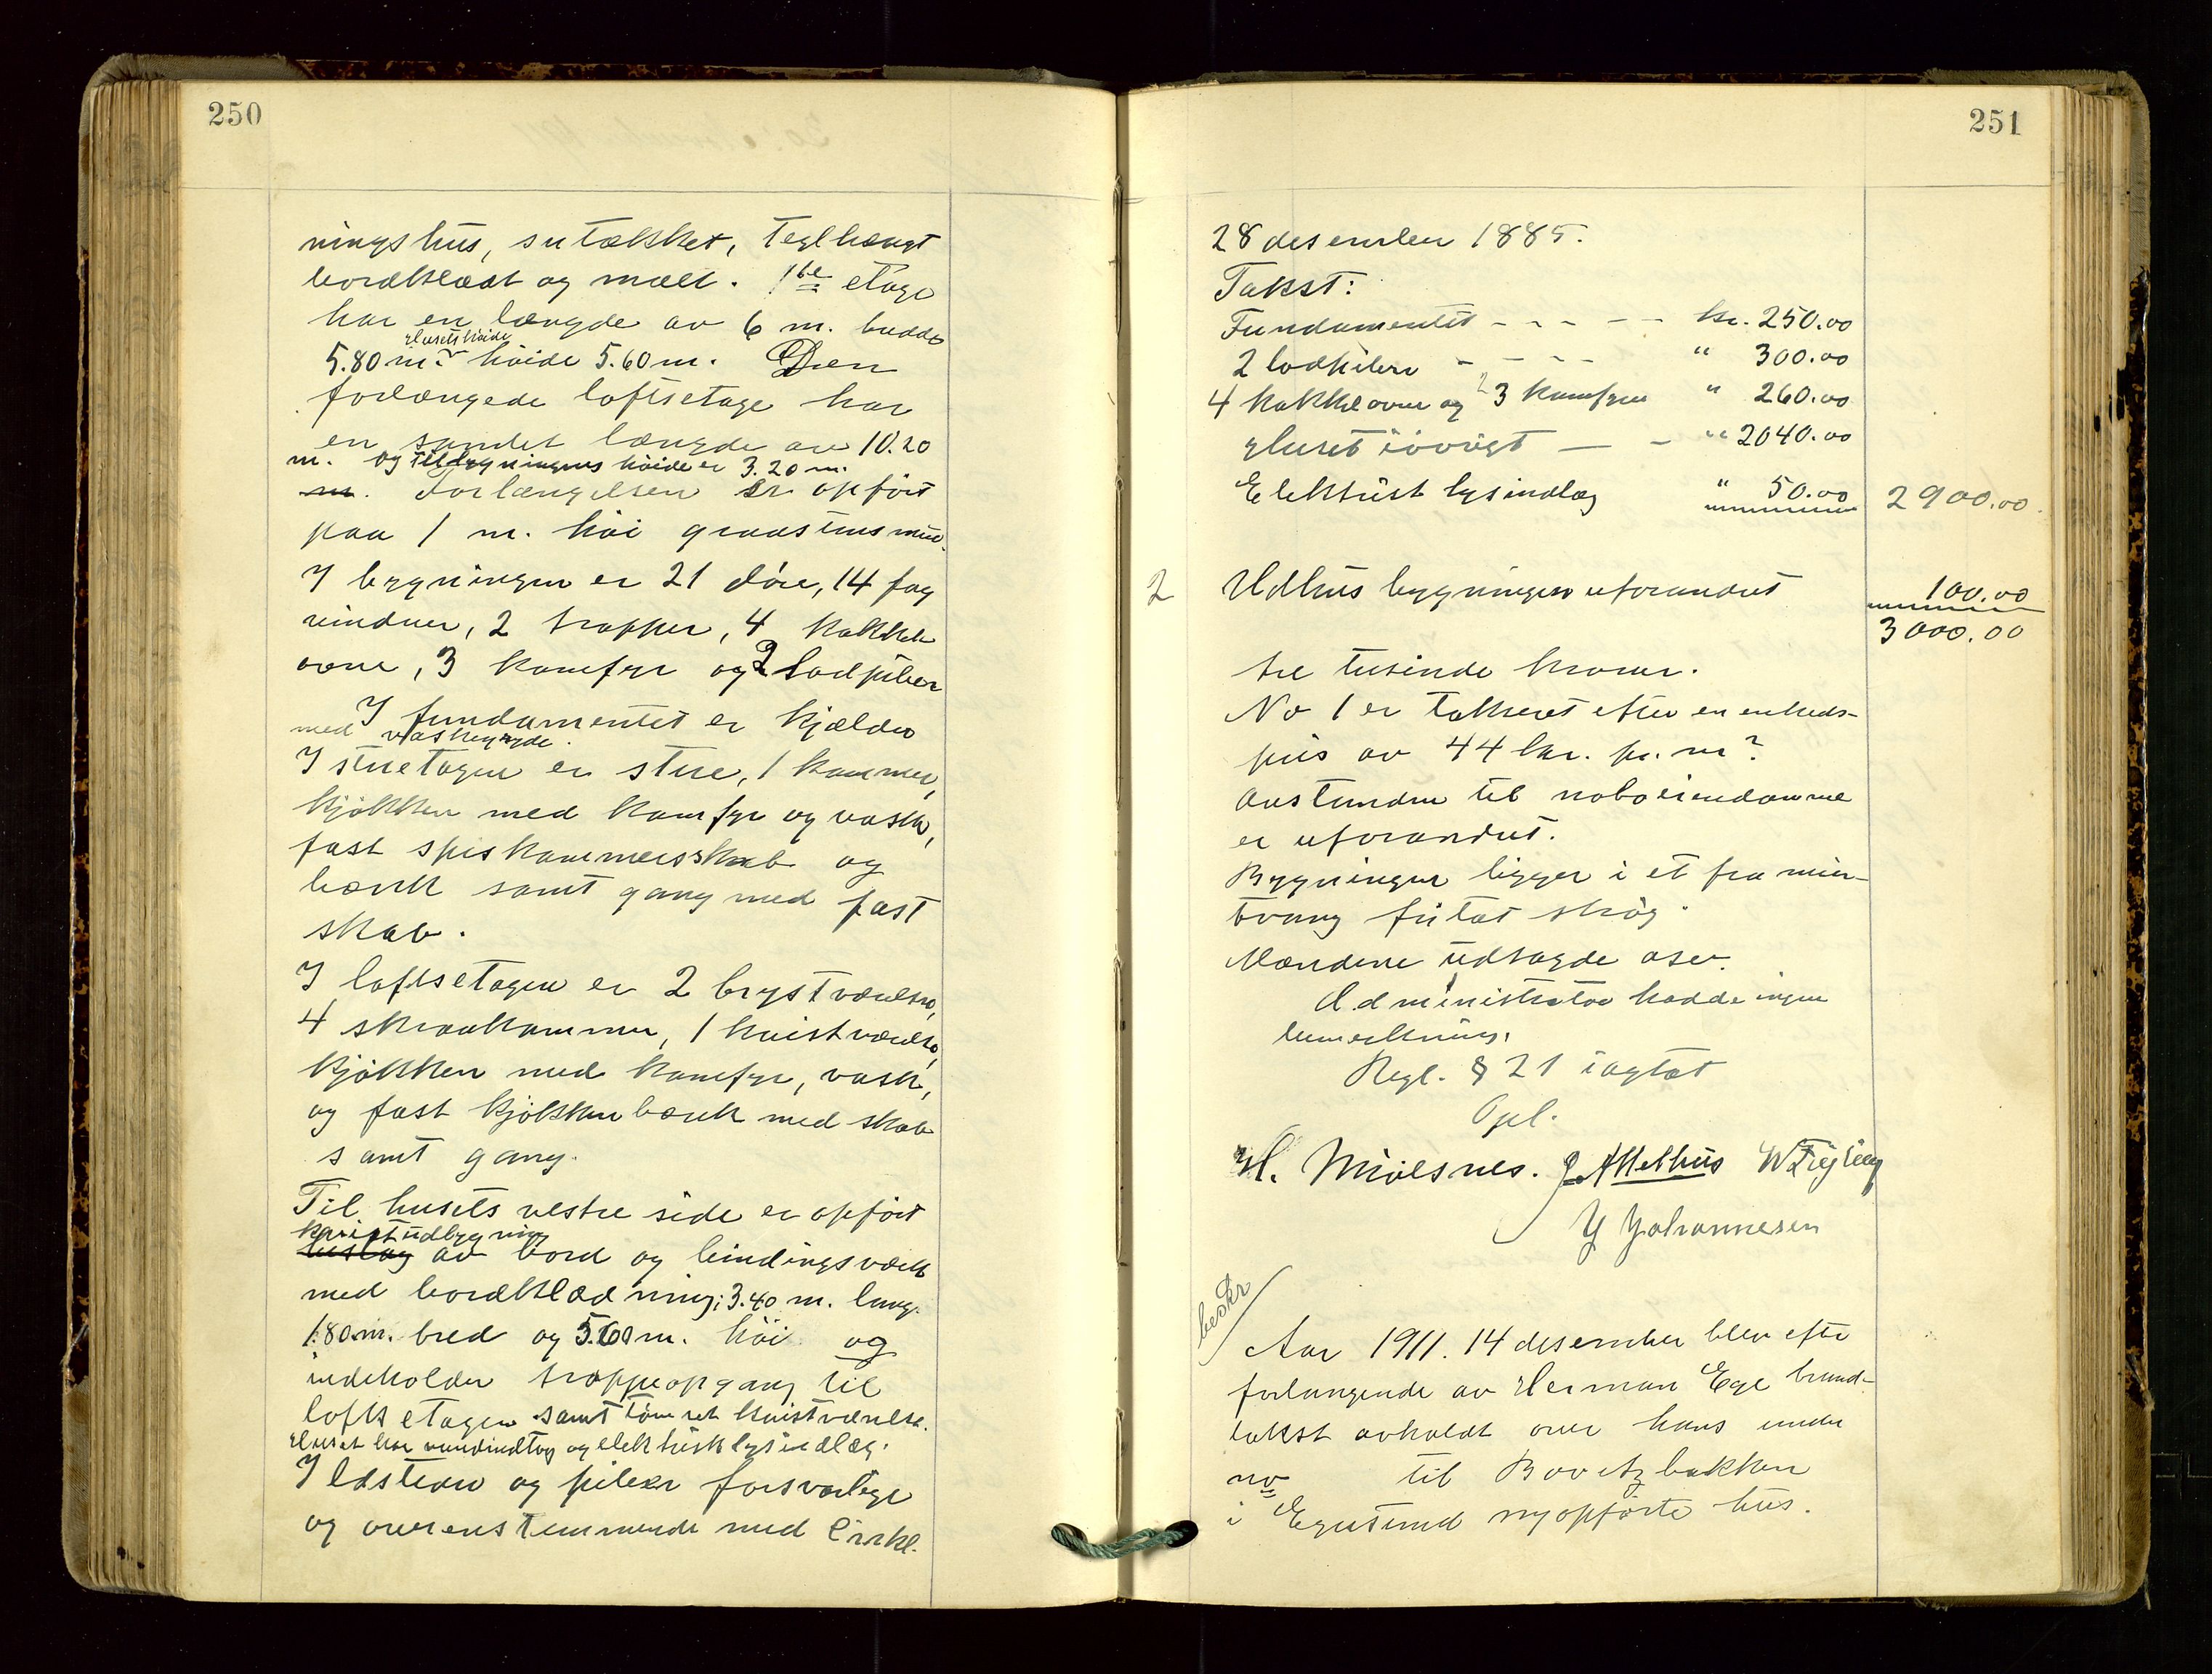 250
ningshus, sutækket, teglhængt
bordklædt og malt. 1ste etage
har en længde av 6 m. bredde
Husets høide
5.80 m. høide 5.60 m. Den
forlængede loftsetage har
en samlet længde av 10.20
m. og tilbygningens høide er 3.20 m.
m. Forlængelsen er opført
paa 1 m. høi graastensmur.
I bygningen er 21 døre, 14 fag
vinduer, 2 trapper, 4 kakkel
ovne, 3 komfyr og 2 lodpiber
I fundamentet er kjælder
med vaskegryde.
I stuetagen er stue, 1 kammer,
kjøkken med komfyr og vask,
fast spiskammersskab og
bænk samt gang med fast
skab.
I loftsetagen er 2 brystværelser,
4 skraakammer, 1 kvistværelse,
kjøkken med komfyr, vask,
og fast kjøkkenbænk med skab
samt gang.
Til husets vestre side er opført
kvistudbygning
bislag av bord og bindingsværk
med bordklædning; 3.40 m. lang.
1.80 m. bred og 5.60 m. høi og
indeholder trappeopgang til
loftsetagen samt tømret kvistværelse.
Huset har vandindlæg og elektrisk lysindlæg.
Ildsteder og piber forsvarlige
og overensstemmende med Cirkl.
251
28 desember 1885.
Takst:
Fundamentet - - - - - kr. 250.00
2 lodpiber - - - - " 300.00
4 kakkelovne og 3 komfyr " 260.00
Huset iøvrigt - - " 2040.00
Elektrisk lysindlæg " 50.00 2900.00
2 Udhusbygningen uforandret 100.00
3000.00
tre tusinde kroner.
No 1 er takseret efter en enheds-
pris av 44 kr. pr. m2
Avstanden til naboeiendomme
er uforandret.
Bygningen ligger i et fra mur-
tvang fritat strøg.
Mændene udsagde asev.
Administrator hadde ingen
bemerkning.
Regl. § 21 iagtat
Opl.
H. Mjølsnes. J. A. Melhus
Y Johannesen
beskr
Aar 1911. 14 desember blev efter
forlangende av Herman Ege brand-
takst avholdt over hans under
no til Bovetzbakken
i Egersund nyopførte hus.